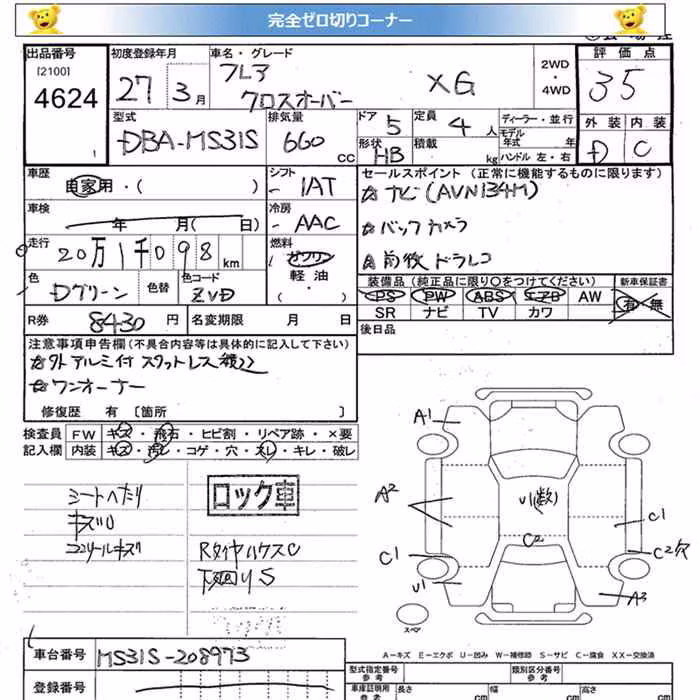 完全ゼロ切りコーナー
出品番号
[2100]
4624
1
初度登録年月
27 3月
車名・グレード
フレア
クロスオーバー
XG
2WD
・
4WD
評価点
3.5
外装 内装
D C
型式
DBA-MS31S
排気量
660 CC
ドア 5
形状 HB
定員 4 人
積載 kg
ディーラー・並行
モデル
年式 年
ハンドル 左・右
車歴
自家用・( )
シフト
- IAT
車検
年 月( 日)
冷房
- AAC
走行
20万1千098 km
燃料
ガソリン
軽油
( ・ )
色
Dグリーン
色替
色コード
ZVD
R券 8430 円
名変期限 月 日
セールスポイント(正常に機能するものに限ります)
☆ナビ(AVN134M)
☆バックカメラ
☆前後ドラレコ
装備品(純正品に限り○をつけてください)
新車保証書
PS PW ABS エアB AW
有・無
SR ナビ TV カワ
後日品
注意事項申告欄(不具合内容等は具体的に記入して下さい)
☆外アルミ付 スタットレス積
☆ワンオーナー
修復歴 有 [箇所 ]
検査員 FW キズ・飛石・ヒビ割・リペア跡・×要
記入欄 内装 キズ・汚レ・コゲ・穴・スレ・キレ・破レ
シートヘたり
キズ
コンソールキズ
ロック車
RタイヤハウスC
下回りS
A1
A2
U1(数)
C2
C1
C1
C2穴
U1
A3
スペア
A-キズ E-エクボ U-凹み W-補修跡 S-サビ C-腐食 XX-交換済
車台番号 MS31S-208973
登録番号
型式指定番号
参考
類別区分番号
参考
車庫証明用
参考
長さ cm
幅 cm
高さ cm